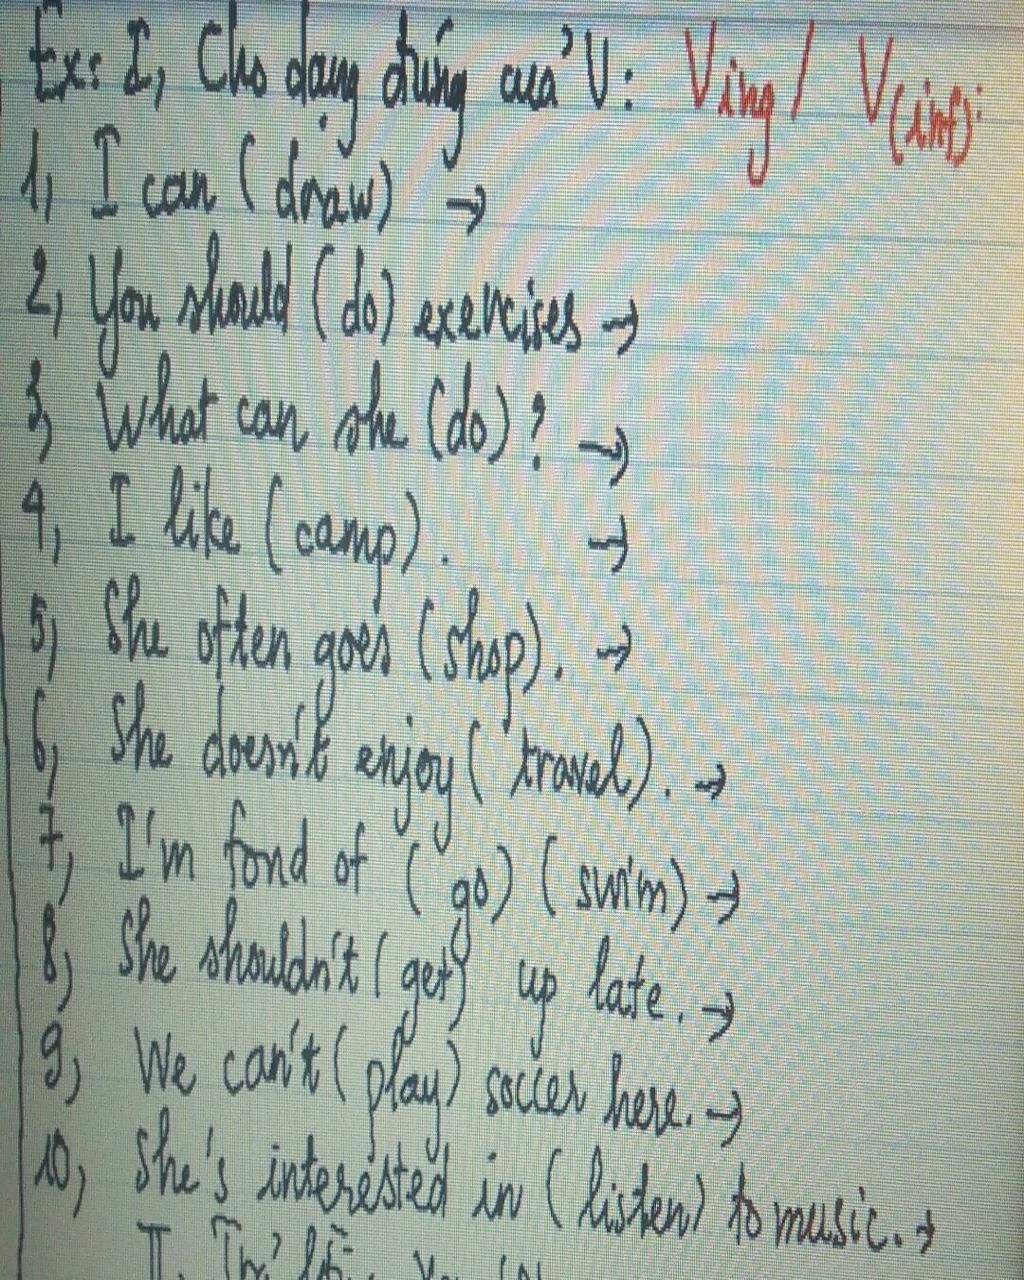 Ex: I, Cho dạng đúng của V: Ving / V(inf):
1, I can (draw) →
2, You should (do) exercises →
3, What can she (do)? →
4, I like (camp). →
5, She often goes (shop). →
6, She doesn't enjoy (travel). →
7, I'm fond of (go) (swim) →
8, She shouldn't (get) up late. →
9, We can't (play) soccer here. →
10, She's interested in (listen) to music. →
II.